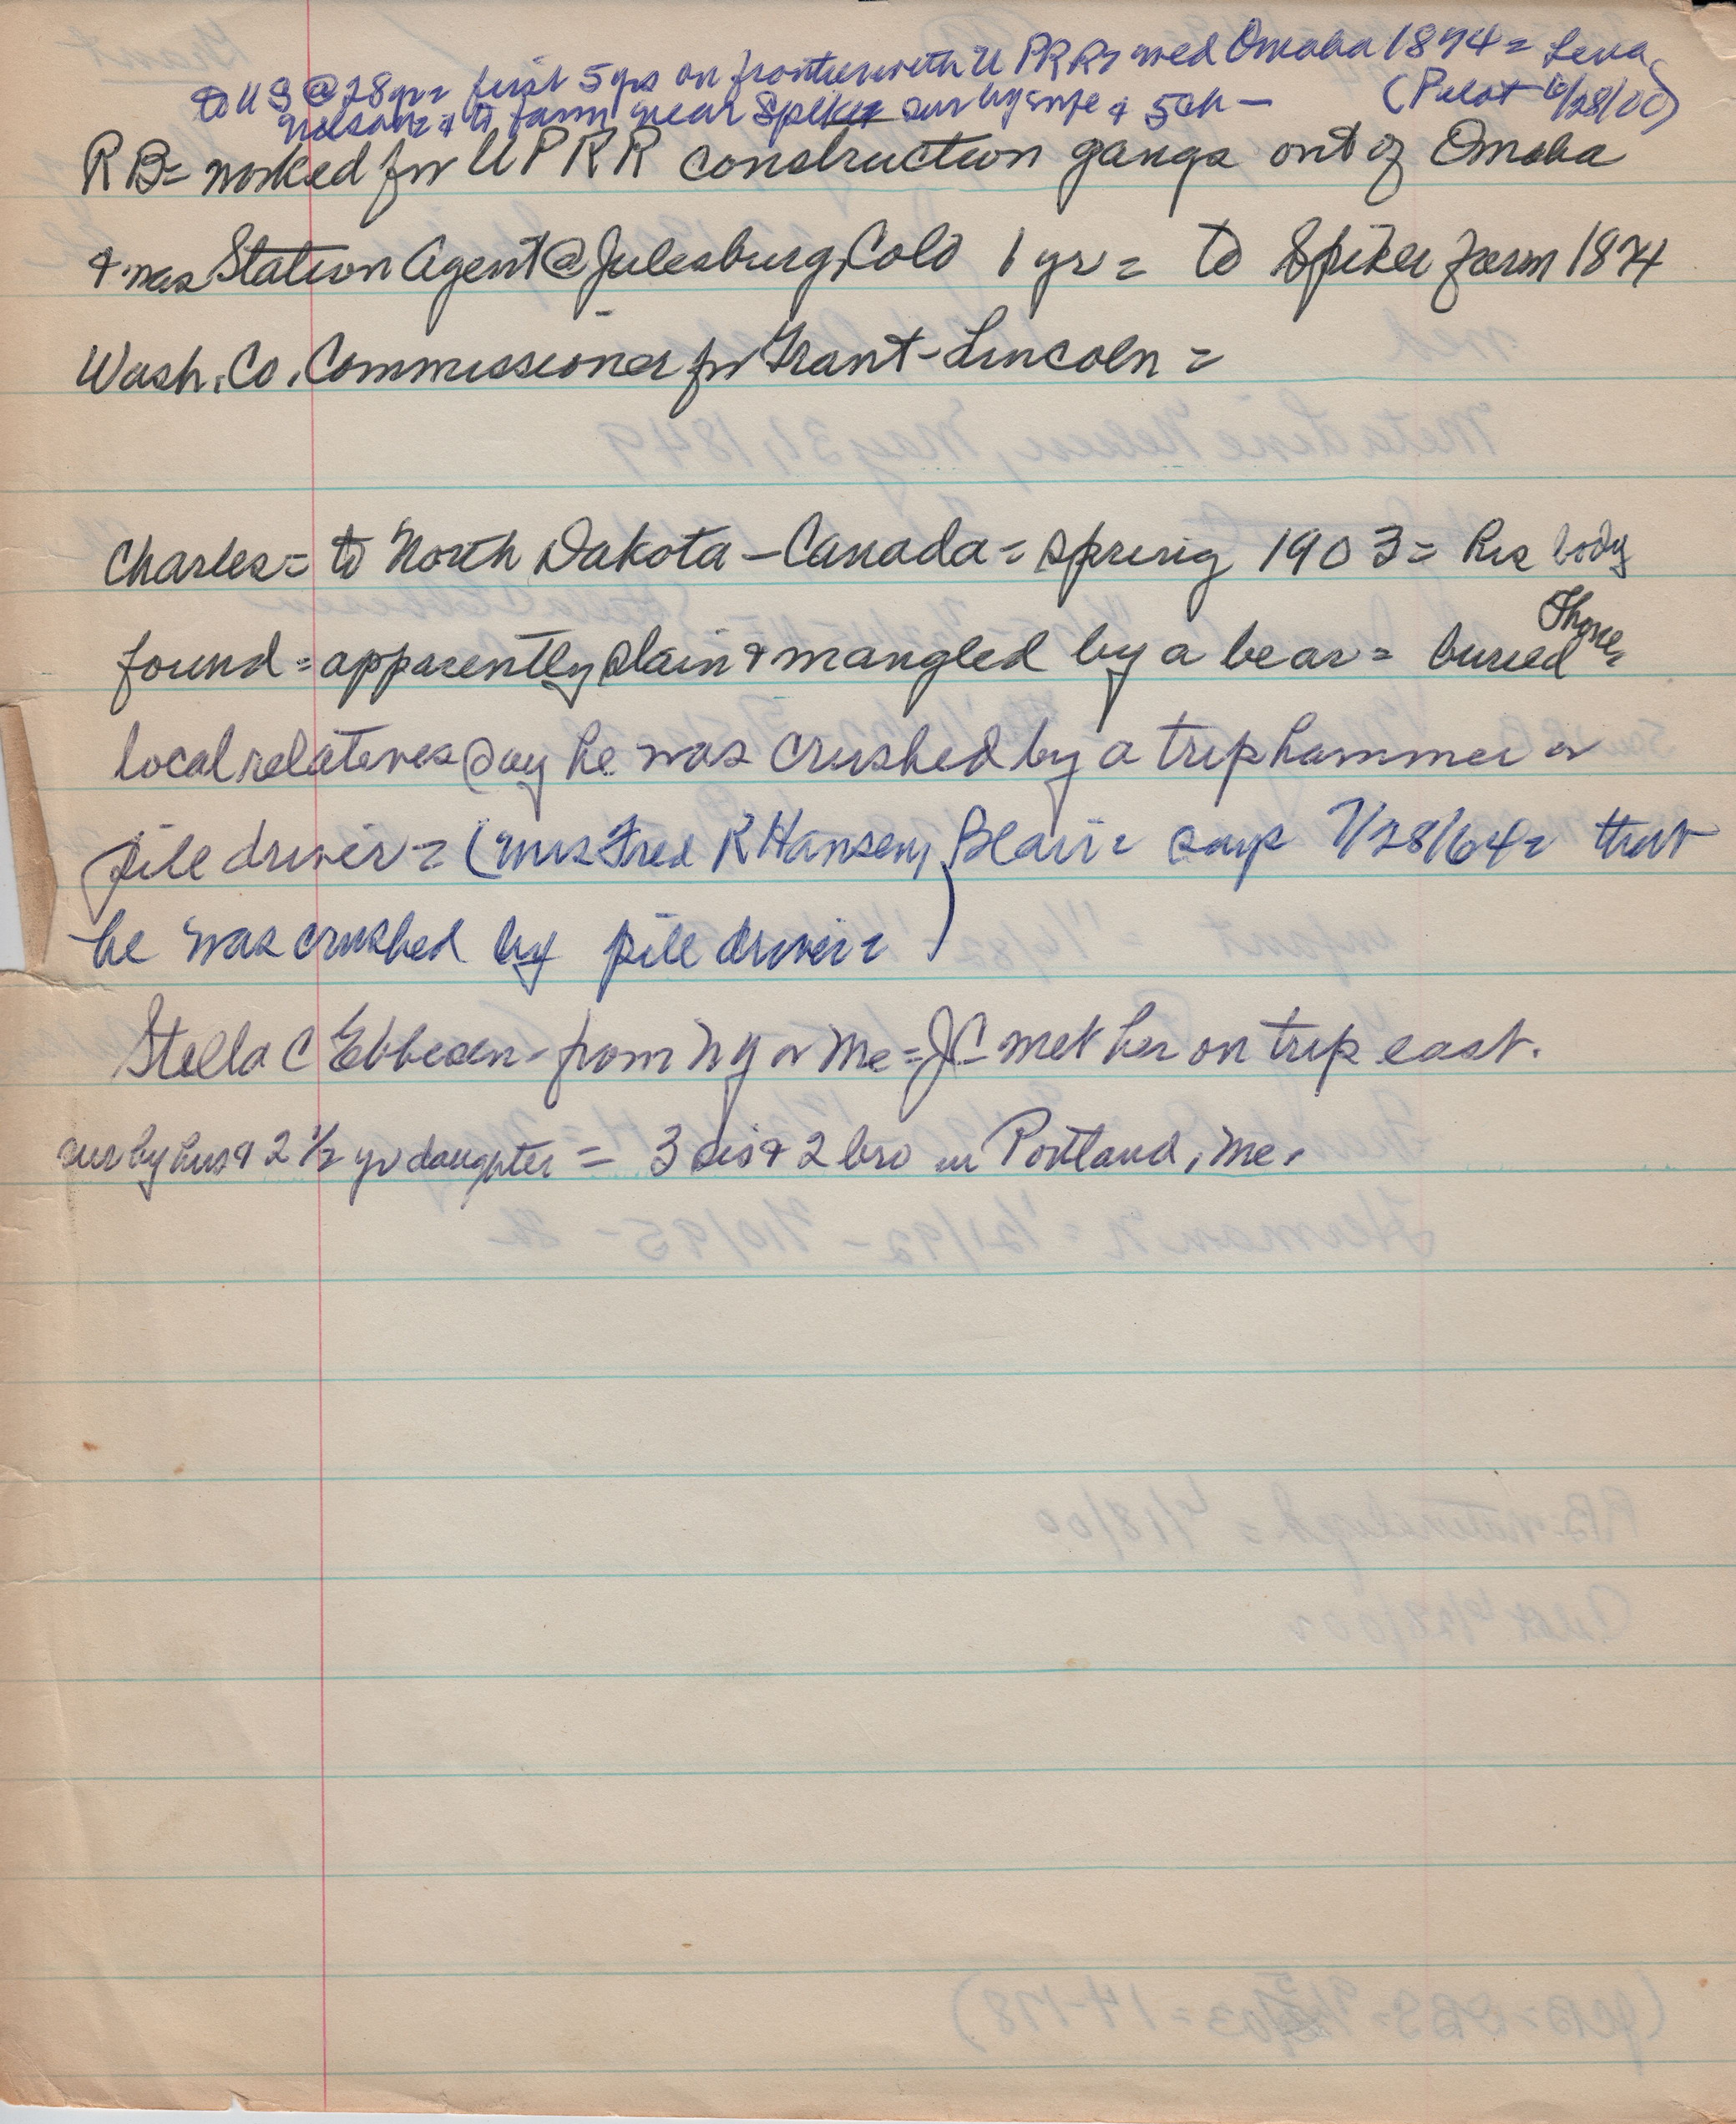 to US @ 28 yr = first 5 yrs on frontier with U PRR, med Omaha 1874 = Lena
Nelson = & to farm near Spiker sur by wife & 5 ch - (Pilot 6/28/00)
RB = worked for UPRR construction gangs out of Omaha
& was Station Agent @ Julesburg, Colo 1 yr = to Spiker farm 1874
Wash. Co. Commissioner for Grant - Lincoln =
Charles = to North Dakota - Canada = spring 1903 = his body
found = apparently slain & mangled by a bear = buried There =
local relatives say he was crushed by a trip hammer or
pile driver = (Mrs Fred R Hansen, Blair = says 7/28/64 = that
he was crushed by pile driver = )
Stella C Ebbesen - from NY or Me = JC met her on trip east.
sur by hus & 2 1/2 yr daughter = 3 sis & 2 bro in Portland, Me.